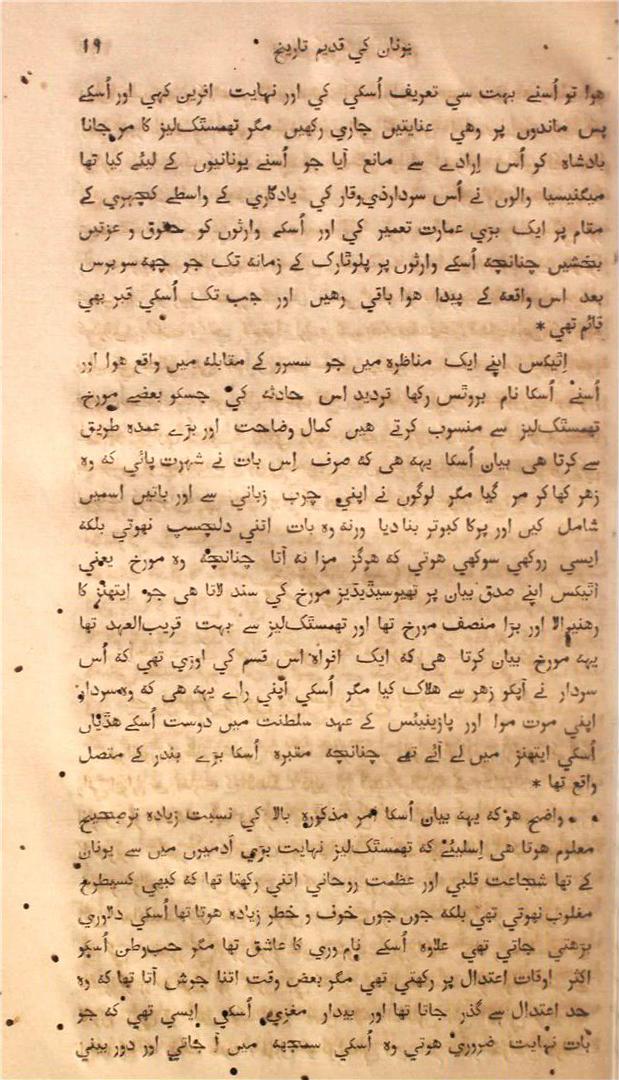 یونان کي قدیم تاریخ ۱۹
ھوا تو اُسنے بہت سي تعریف اُسکي کي اور نہایت افرین کہي اور اُسکے
پس ماندوں پر وھي عنایتیں جاري رکھیں مگر تھمستّکلیز کا مر جانا
بادشاہ کو اُس اِرادے سے مانع آیا جو اُسنے یونانیوں کے لیئے کیا تھا
میگنیسیا والوں نے اُس سردار ذيوقار کي یادگاري کے واسطے کچہري کے
مقام پر ایک بڑي عمارت تعمیر کي اور اُسکے وارثوں کو حقوق و عزتیں
بخشیں چنانچہ اُسکے وارثوں پر پلوٹارک کے زمانہ تک جو چھہ سو برس
بعد اس واقعہ کے پیدا ھوا باقي رھیں اور جب تک اُسکي قبر بھي
قائم تھي *
اِٹیکس اپنے ایک مناظرہ میں جو سسرو کے مقابلہ میں واقع ھوا اور
اُسنے اُسکا نام بروٹس رکھا تردید اس حادثہ کي جسکو بعضے مورخ
تھمستّکلیز سے منسوب کرتے ھیں کمال وضاحت اور بڑے عمدہ طریق
سے کرتا ھی بیان اُسکا یہہ ھی کہ صرف اِس بات نے شہرت پائي کہ وہ
زھر کھا کر مر گیا مگر لوگوں نے اپني چرب زباني سے اور باتیں اسمیں
شامل کیں اور پرکا کبوتر بنا دیا ورنہ وہ بات اتني دلچسپ نہوتي بلکہ
ایسي روکھي سوکھي ھوتي کہ ھرگز مزا نہ آتا چنانچہ وہ مورخ یعني
اٹیکس اپنے صدق بیان پر تھیوسیڈیڈیز مورخ کي سند لاتا ھی جو ایتھنز کا
رھنیوالا اور بڑا منصف مورخ تھا اور تھمستّکلیز سے بہت قریب‌العہد تھا
یہہ مورخ بیان کرتا ھی کہ ایک افواہ اس قسم کي اوڑي تھي کہ اُس
سردار نے آپکو زھر سے ھلاک کیا مگر اُسکي اپني راے یہہ ھی کہ وہ سردار
اپني موت موا اور پازینیئس کے عہد سلطنت میں دوست اُسکے ھڈیاں
اُسکي ایتھنز میں لے آئے تھے چنانچہ مقبرہ اُسکا بڑے بندر کے متصل
واقع تھا *
واضح ھو کہ یہہ بیان اُسکا امر مذکورہ بالا کي نسبت زیادہ تر صحیح
معلوم ھوتا ھی اِسلیئے کہ تھمستّکلیز نہایت بڑي آدمیوں میں سے یونان
کے تھا شجاعت قلبي اور عظمت روحاني اتني رکھتا تھا کہ کبھي کسیطرح
مغلوب نہوتي تھي بلکہ جوں جوں خوف و خطر زیادہ ھوتا تھا اُسکي دلاوري
بڑھتي جاتي تھي علاوہ اُسکے نام وري کا عاشق تھا مگر حب‌وطن اُسکو
اکثر اوقات اعتدال پر رکھتي تھي مگر بعض وقت اتنا جوش آتا تھا کہ وہ
حد اعتدال سے گذر جاتا تھا اور بیدار مغزي اُسکي ایسي تھي کہ جو
بات نہایت ضروري ھوتي وہ اُسکي سمجھہ میں آ جاتي اور دور بیني